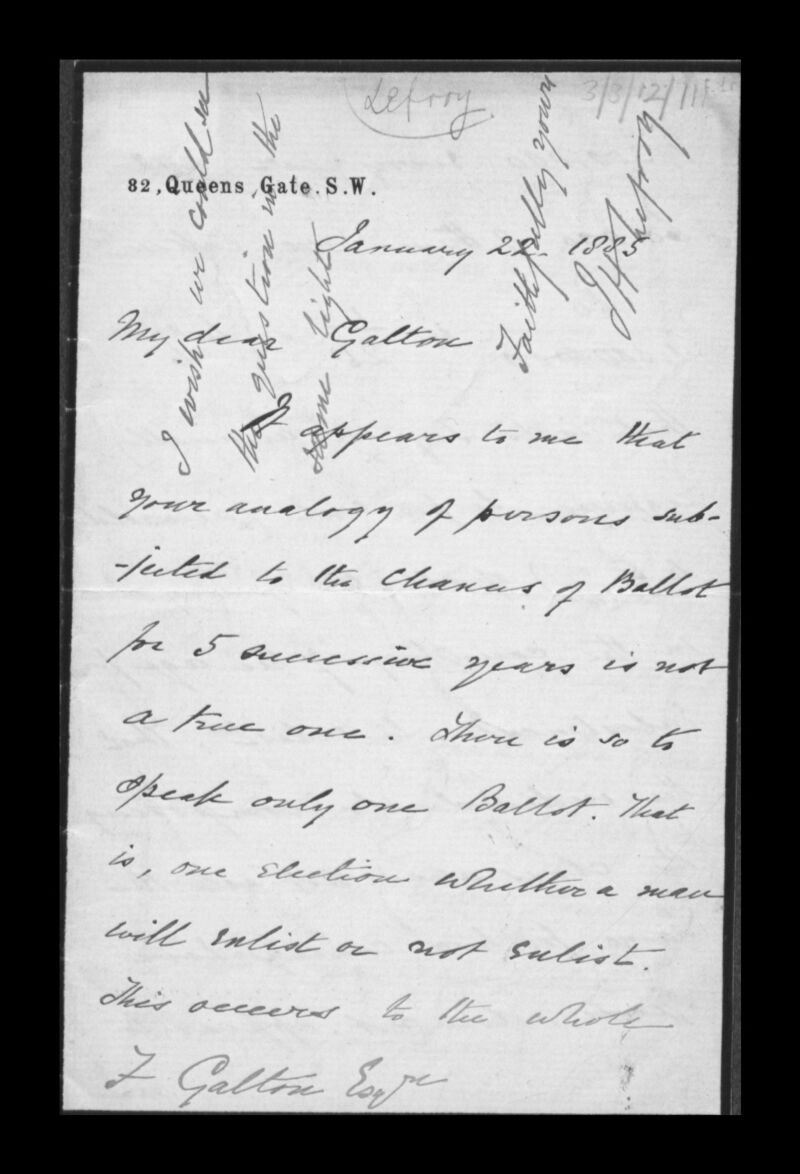 Lefroy
3/3/12/11
82, Queens Gate. S.W.
January 22. 1885
My dear Galton
It appears to me that
your analogy of persons sub-
-jected to the chances of Ballot
for 5 successive years is not
a true one. There is so to
speak only one Ballot. That
is, one election whether a man
will enlist or not enlist.
This occurs to the whole
F Galton Esqre
I wish we could see
the question in the
same light
Faithfully yours
JH Lefroy